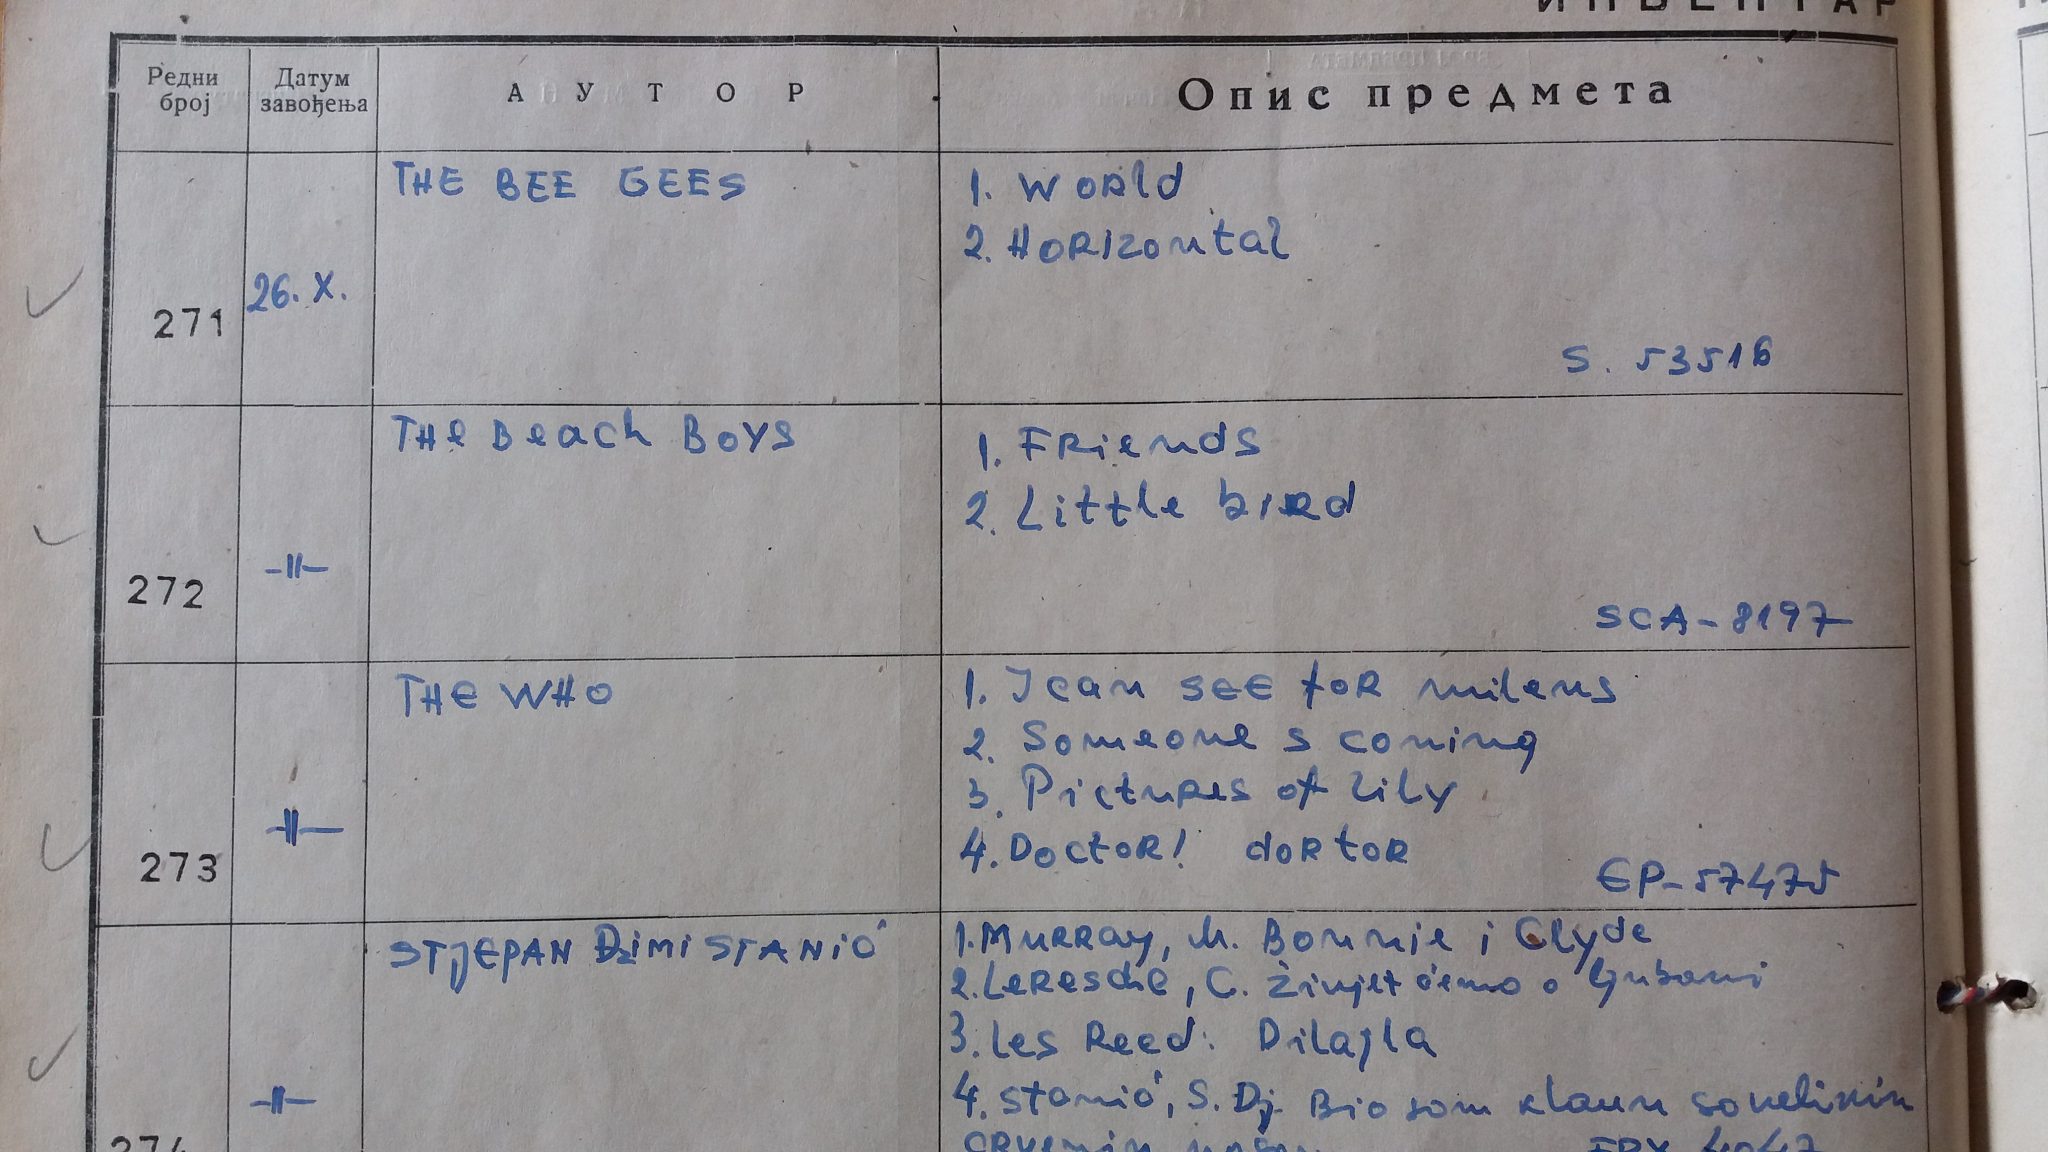 ИНВЕНТАР
Редни број
Датум завођења
АУТОР
Опис предмета
271
26. X.
THE BEE GEES
1. World
2. Horizontal
S. 53516
272
-II-
The Beach Boys
1. Friends
2. Little bird
SCA-8197
273
-II-
THE WHO
1. I can see for milens
2. Someone s coning
3. Pictures of lily
4. Doctor! dortor
EP-57475
274
-II-
STJEPAN DŽIMI STANIĆ
1. Murray, M. Bonnie i Clyde
2. Leresche, C. Živjet ćemo o ljubavi
3. Les Reed: Dilajla
4. Stanić, S. Dj. Bio sam klaun sa velikim
crvenim nosem
EPY 4047